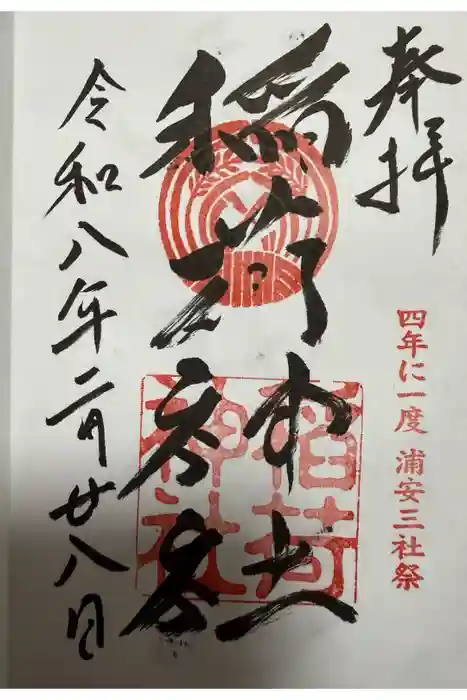 奉拝
四年に一度 浦安三社祭
稲荷神社
稲荷
神社
令和八年二月廿八日